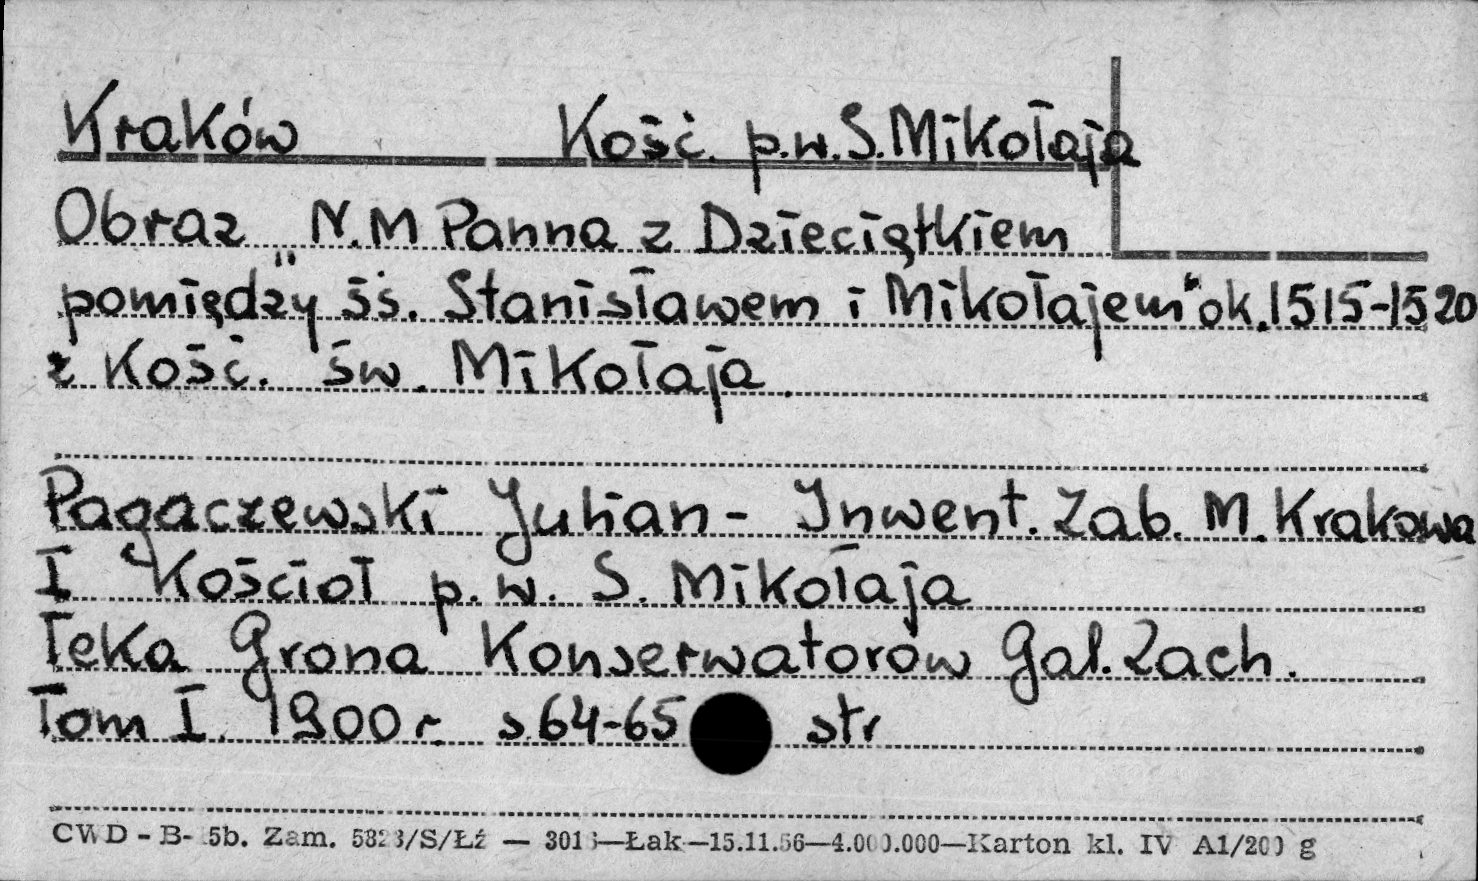 Kraków Kość. p.w. S. Mikołaja
Obraz "N.M Panna z Dzieciątkiem
pomiędzy śś. Stanisławem i Mikołajem" ok. 1515-1520
z Kość. św. Mikołaja.
Pagaczewski Julian - Inwent. Zab. M. Krakowa
I Kościoł p.w. S. Mikołaja
Teka Grona Konserwatorów Gal. Zach.
Tom I. 1900 r. s. 64-65 str
CWD - B- 5b. Zam. 5823/S/Łź — 3016—Łak—15.11.56—4.000.000—Karton kl. IV A1/200 g